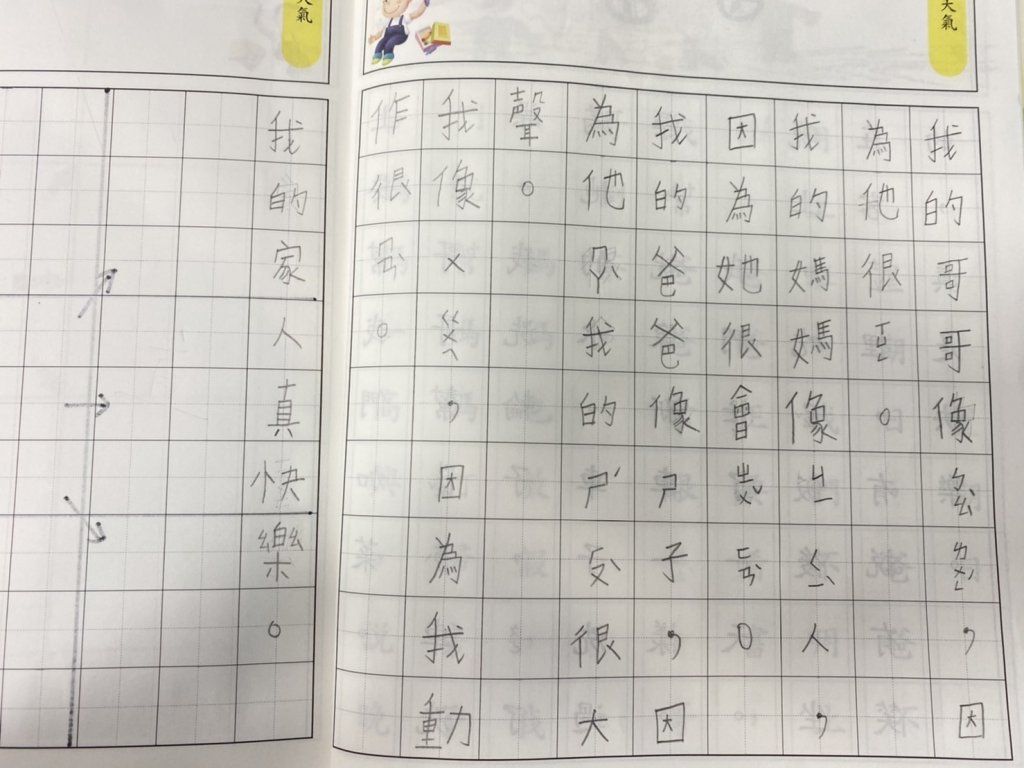 天氣
我的哥哥像，因
為他很。
我的媽媽像人，
因為她很會。
我的爸爸像ㄕ子，因
為他我的ㄕˊ很大
聲。
我像ㄨ，因為我動
作很。
天氣
我的家人真快樂。